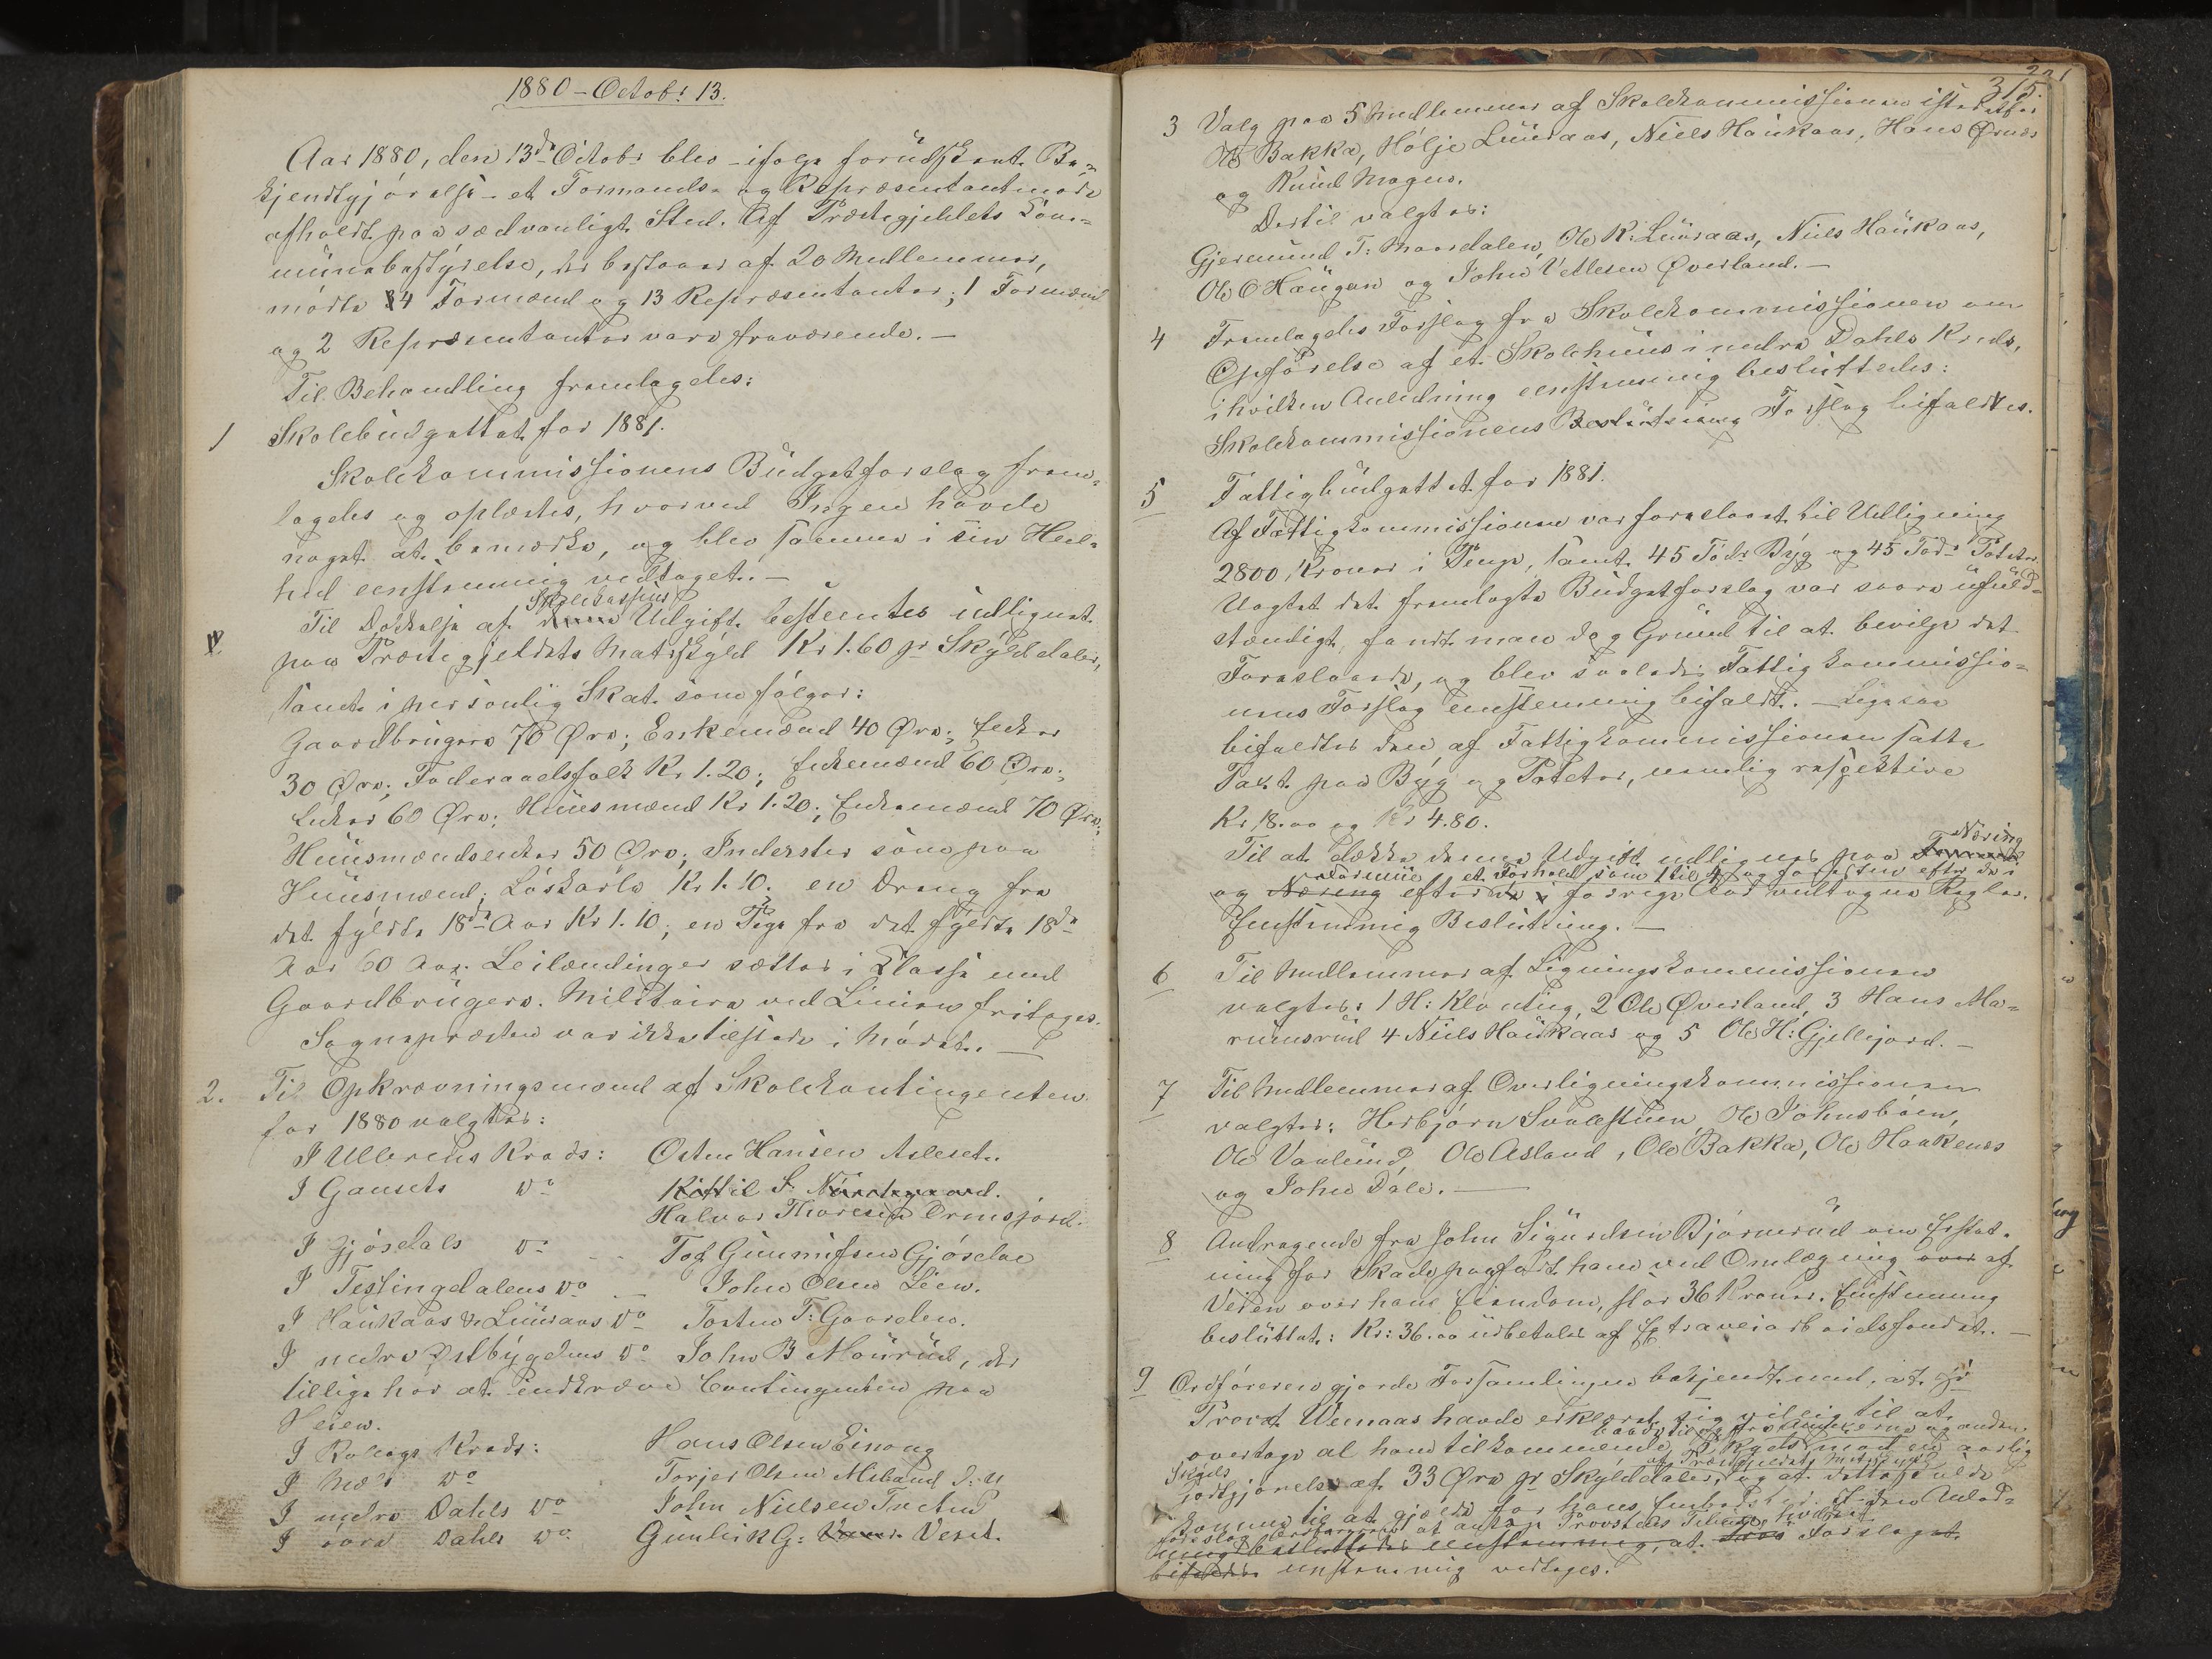 1880 - Octobr. 13.
Aar 1880, den 13de Octobr blev - ifølge forudskeet Be-
kjendtgjørelse - et Formands- og Repræsentantmøde
afholdt paa sædvanligt Sted. Af Præstegjeldets Com-
munebestyrelse, der bestaaer af 20 Medlemmer,
mødte 4 Formænd og 13 Repræsentanter; 1 Formænd
og 2 Repræsentanter vare fraværende. -
Til Behandling fremlagdes:
1 Skolebudgettet for 1881.
Skolekommissionens Budgetforslag frem-
lagdes og oplæstes, hvorved Ingen havde
noget at bemærke, og blev samme i sin Heel-
hed eenstemmig vedtaget. -
Skolekassens
Til Dækkelse af denne Udgift bestemtes udlignet
paa Præstegjeldets Matrskyld Kr 1.60 pr Skylddaler,
samt i personlig Skat som følger:
Gaardbrugere 70 Øre; Enkemænd 40 Øre; Enker
30 Øre; Føderaadsfolk Kr 1.20; Enkemænd 60 Øre;
Enker 60 Øre; Huusmænd Kr 1.20; Enkemænd 70 Øre;
Huusmændsenker 50 Øre; Inderster som paa
Huusmænd; Løskarle Kr 1.10; en Dreng fra
det fyldte 18de Aar Kr 1.10; en Pige fra det fyldte 18de
Aar 60 Øre. Leilændinger sættes i Classe med
Gaardbrugere. Militaire ved Linien fritages.
Sognepræsten var ikke tilstede i Mødet. -
2. Til Opkrævningsmænd af Skolekontingenten
for 1880 valgtes:
I Ullerens Kreds: Østen Hansen Asleset.
I Gausets Do Kittil S. Nørstegaard.
Halvor Thoresen Ormsjord.
I Gjøsdals Do - Tov Gunnufsen Gjøsdal
I Tessingdalens Do - John Olsen Lien.
I Haukaas & Luraas Do Torsten T: Gaarden.
I nedre Østbygdens Do John B Maurud, der
tillige har at indkræve Contingenten paa
Heien.
I Rollags Kreds: Hans Olsen Einong
I Mæl Do Torjer Olsen Miland d: y
I nedre Dahls Do John Nielsen
I øvre Dahls Do Gunleik G: Veset.
315.
3 Valg paa 5 Medlemmer af Skolekommissionen istedetfor
Ole Bakka, Hølje Luraas, Niels Haukaas, Hans Ørnes
og Knud Mogen.
Dertil valgtes:
Gjermund T: Maardalen, Ole K: Luraas, Niels Haukaas,
Ole O Haugan og John Vetlesen Øverland. -
4 Fremlagdes Forslag fra Skolekommissionen om
Opførelse af et Skolehuus i nedre Dahls Kreds,
i hvilken Anledning eenstemmig besluttedes:
Skolekommissionens Beslutning Forslag bifaldtes.
5 Fattigbudgettet for 1881.
Af Fattigkommissionen var foreslaaet til Udligning
2800 Kroner i Penge, samt 45 Tdr Byg og 45 Tdr Poteter.
Uagtet det fremlagte Budgetforslag var saare ufuld-
stændigt, fandt man dog Grund til at bevilge det
Foreslaaede, og blev saaledes Fattigkommissio-
nens Forslag eenstemmig bifaldt. - Ligesaa
bifaldtes den af Fattigkommissionen satte
Taxt paa Byg og Poteter, nemlig respektive
Kr 18.00 og Kr 4.80.
Næring
Til at dække denne Udgift udlignes paa Formue
Formue i et Forhold som 1 til 4 og forresten efter de i
og Næring efter de i forrige Aar vedtagne Regler.
Eenstemmig Beslutning. -
6 Til Medlemmer af Ligningskommissionen
valgtes: 1 H: Klonteig, 2 Ole Øverland, 3 Hans Ma-
rumsrud 4 Niels Haukaas og 5 Ole H: Gjellejord. -
7 Til Medlemmer af Overligningskommissionen
valgtes: Herbjørn Svalestuen, Ole Johnsbøen,
Ole Vaalund, Ole Asland, Ole Bakka, Ole Haakenæs
og John Dale. -
8 Andragende fra John Sigurdsen Bjørnerud om Erstat-
ning for Skade paaført ham ved Omlægning over af
Veien over hans Eiendom, stor 36 Kroner. Eenstemmig
besluttet: Kr: 36.00 udbetales af Extraveiarbeidsfondet. -
9 Ordføreren gjorde Forsamlingen bekjendt med, at Hr
Provst Wemaas havde erklæret sig villig til at
overtage al ham tilkommende Skyds mod en aarlig
Skyds
godtgjørelse af 33 Øre pr Skylddaler, og at dette skulde
komme til at gjælde for hans Embedstid.
at antage Provstens Tilbud, hvilket
besluttedes eenstemmig, at Forslaget
bifaldes eenstemmig vedtages.